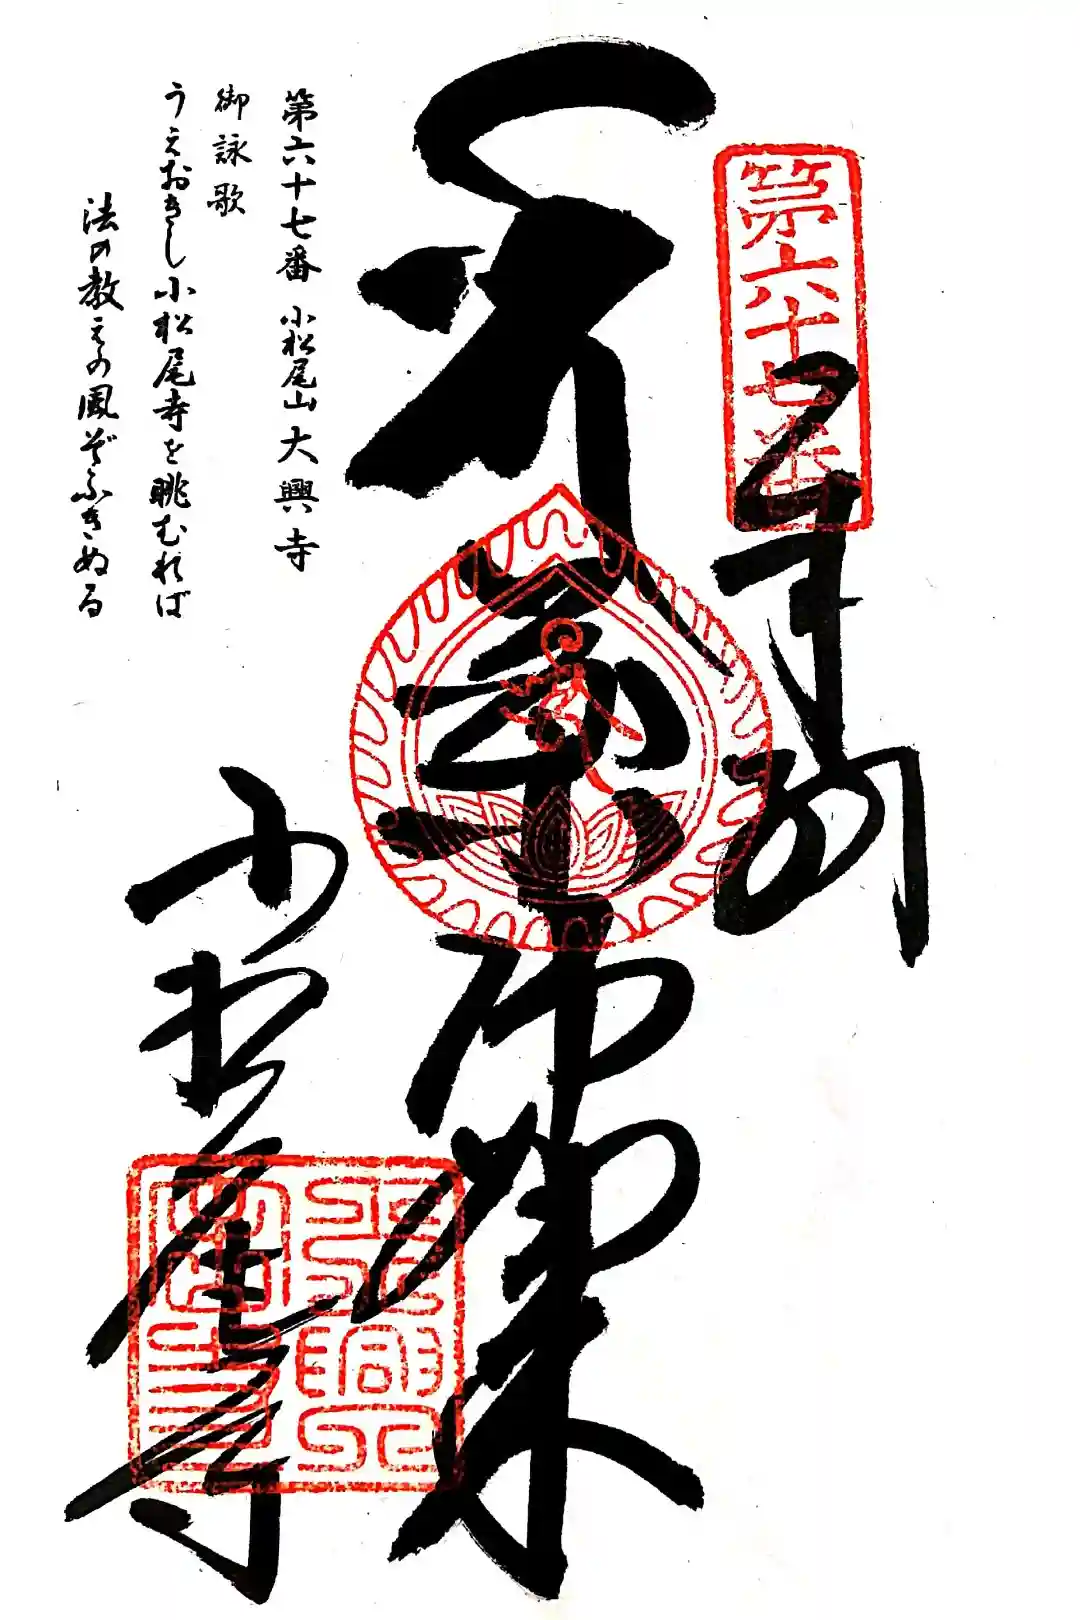 第六十七番
奉拝
薬師如来
小松尾寺
第六十七番 小松尾山 大興寺
御詠歌
うえおきし小松尾寺を眺むれば
法の教えの風ぞふきぬる